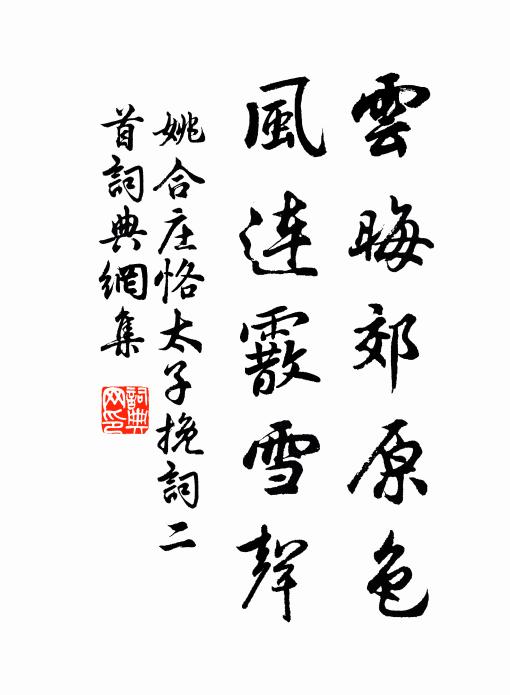 雲晦郊原色
風連霰雪聲
姚合庄恪太子挽詞二
首詞典網集
詞典
网印